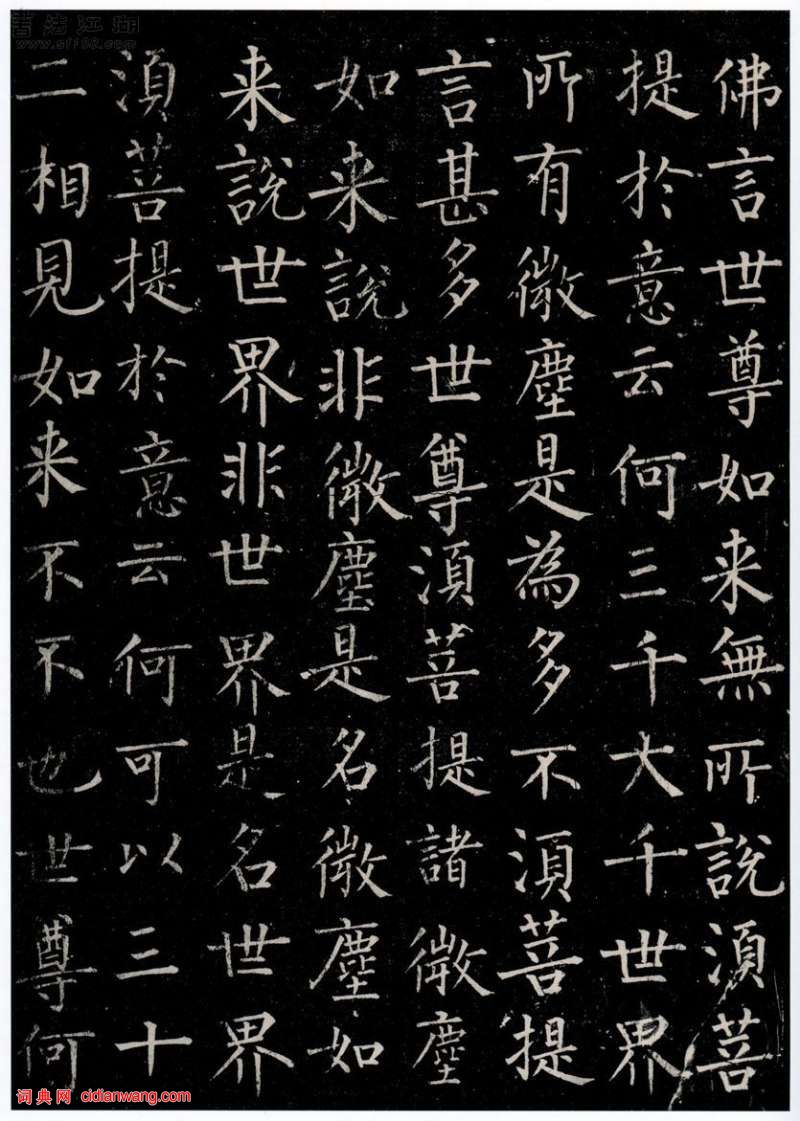 佛言世尊如来無所說湏菩
提於意云何三千大千世界
所有微塵是為多不湏菩提
言甚多世尊湏菩提諸微塵
如来說非微塵是名微塵如
来說世界非世界是名世界
湏菩提於意云何可以三十
二相見如来不不也世尊何
書法江湖
词典网 cidianwang.com